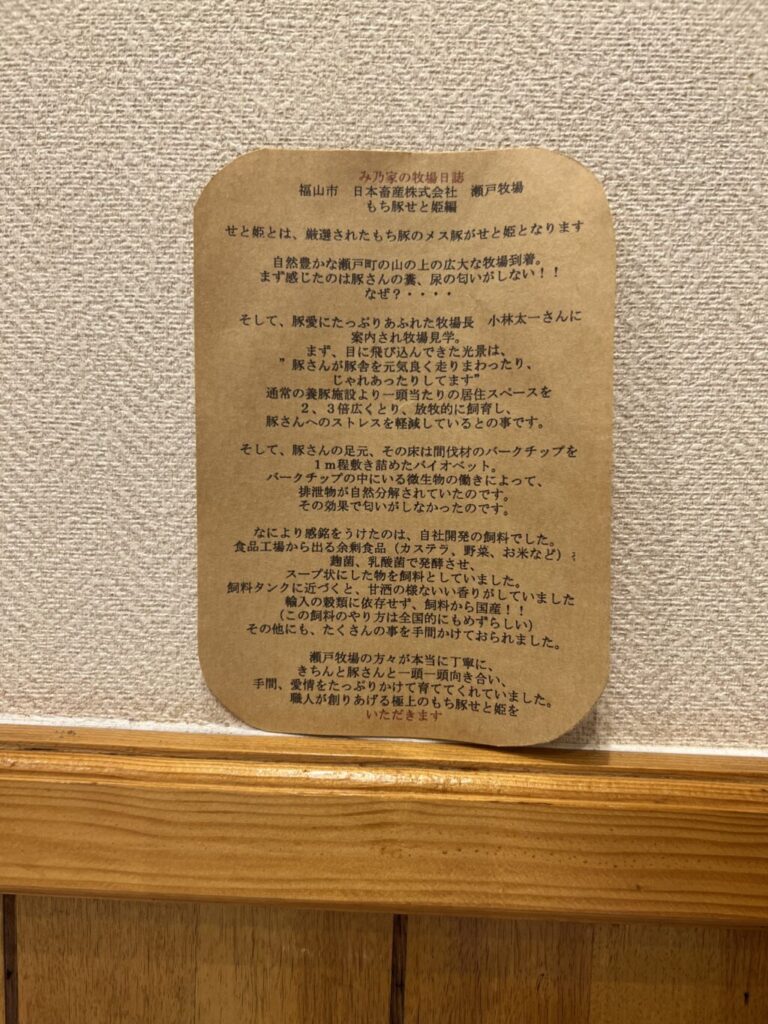 み乃家の牧場日誌
福山市　日本畜産株式会社　瀬戸牧場
もち豚せと姫編
せと姫とは、厳選されたもち豚のメス豚がせと姫となります
自然豊かな瀬戸町の山の上の広大な牧場到着。
まず感じたのは豚さんの糞、尿の匂いがしない！！
なぜ？・・・・
そして、豚愛にたっぷりあふれた牧場長　小林太一さんに
案内され牧場見学。
まず、目に飛び込んできた光景は、
”豚さんが豚舎を元気良く走りまわったり、
じゃれあったりしてます”
通常の養豚施設より一頭当たりの居住スペースを
２、３倍広くとり、放牧的に飼育し、
豚さんへのストレスを軽減しているとの事です。
そして、豚さんの足元、その床は間伐材のバークチップを
１ｍ程敷き詰めたバイオベット。
バークチップの中にいる微生物の働きによって、
排泄物が自然分解されていたのです。
その効果で匂いがしなかったのです。
なにより感銘をうけたのは、自社開発の飼料でした。
食品工場から出る余剰食品（カステラ、野菜、お米など）を
麹菌、乳酸菌で発酵させ、
スープ状にした物を飼料としていました。
飼料タンクに近づくと、甘酒の様ないい香りがしていました
輸入の穀類に依存せず、飼料から国産！！
（この飼料のやり方は全国的にもめずらしい）
その他にも、たくさんの事を手間かけておられました。
瀬戸牧場の方々が本当に丁寧に、
きちんと豚さんと一頭一頭向き合い、
手間、愛情をたっぷりかけて育ててくれていました。
職人が創りあげる極上のもち豚せと姫を
いただきます